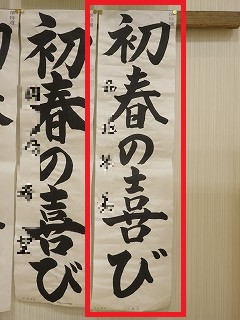 初春の喜び
初春の喜び